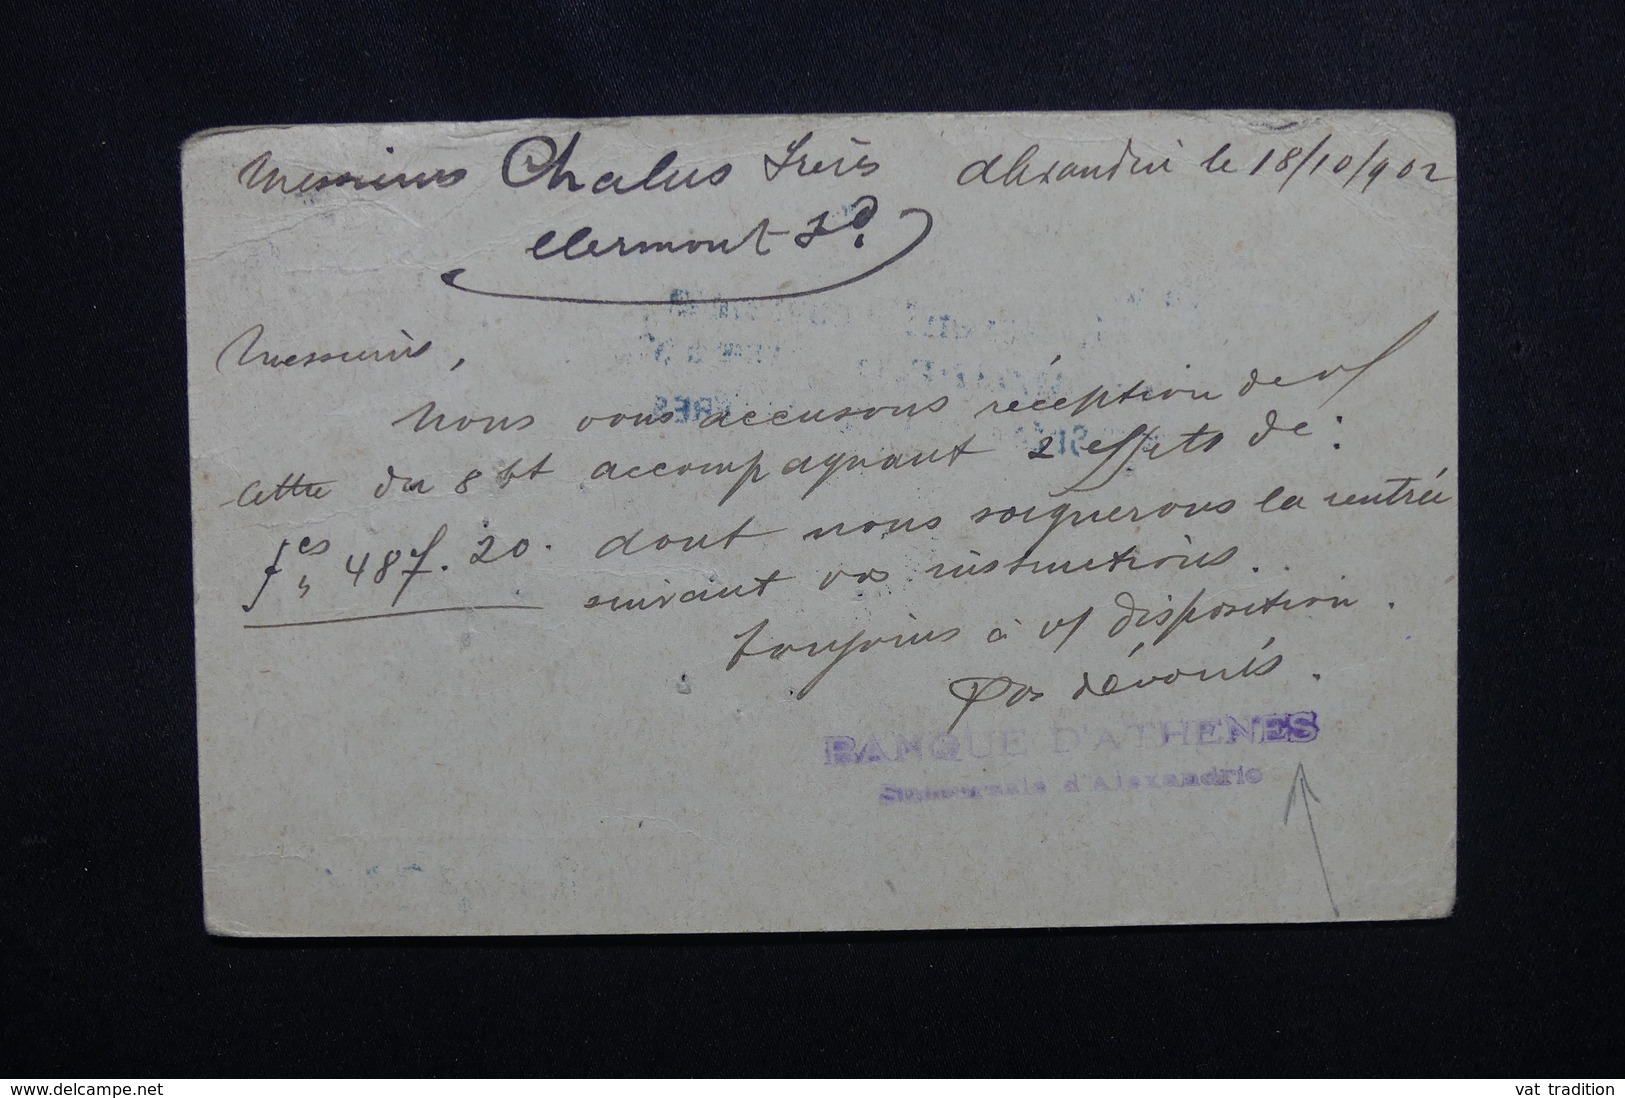 Messieurs Chalus Frères Alexandrie le 18/10/902
Clermont Fd.
Messieurs,
Nous vous accusons réception de v/
lettre du 8 ct accompagnant 2 effets de :
fcs 487.20. dont nous soignerons la rentrée
suivant vos instructions.
Toujours à v/ disposition.
Vos dévoués.
BANQUE D'ATHENES
Succursale d'Alexandrie
www.delcampe.net
vat_tradition